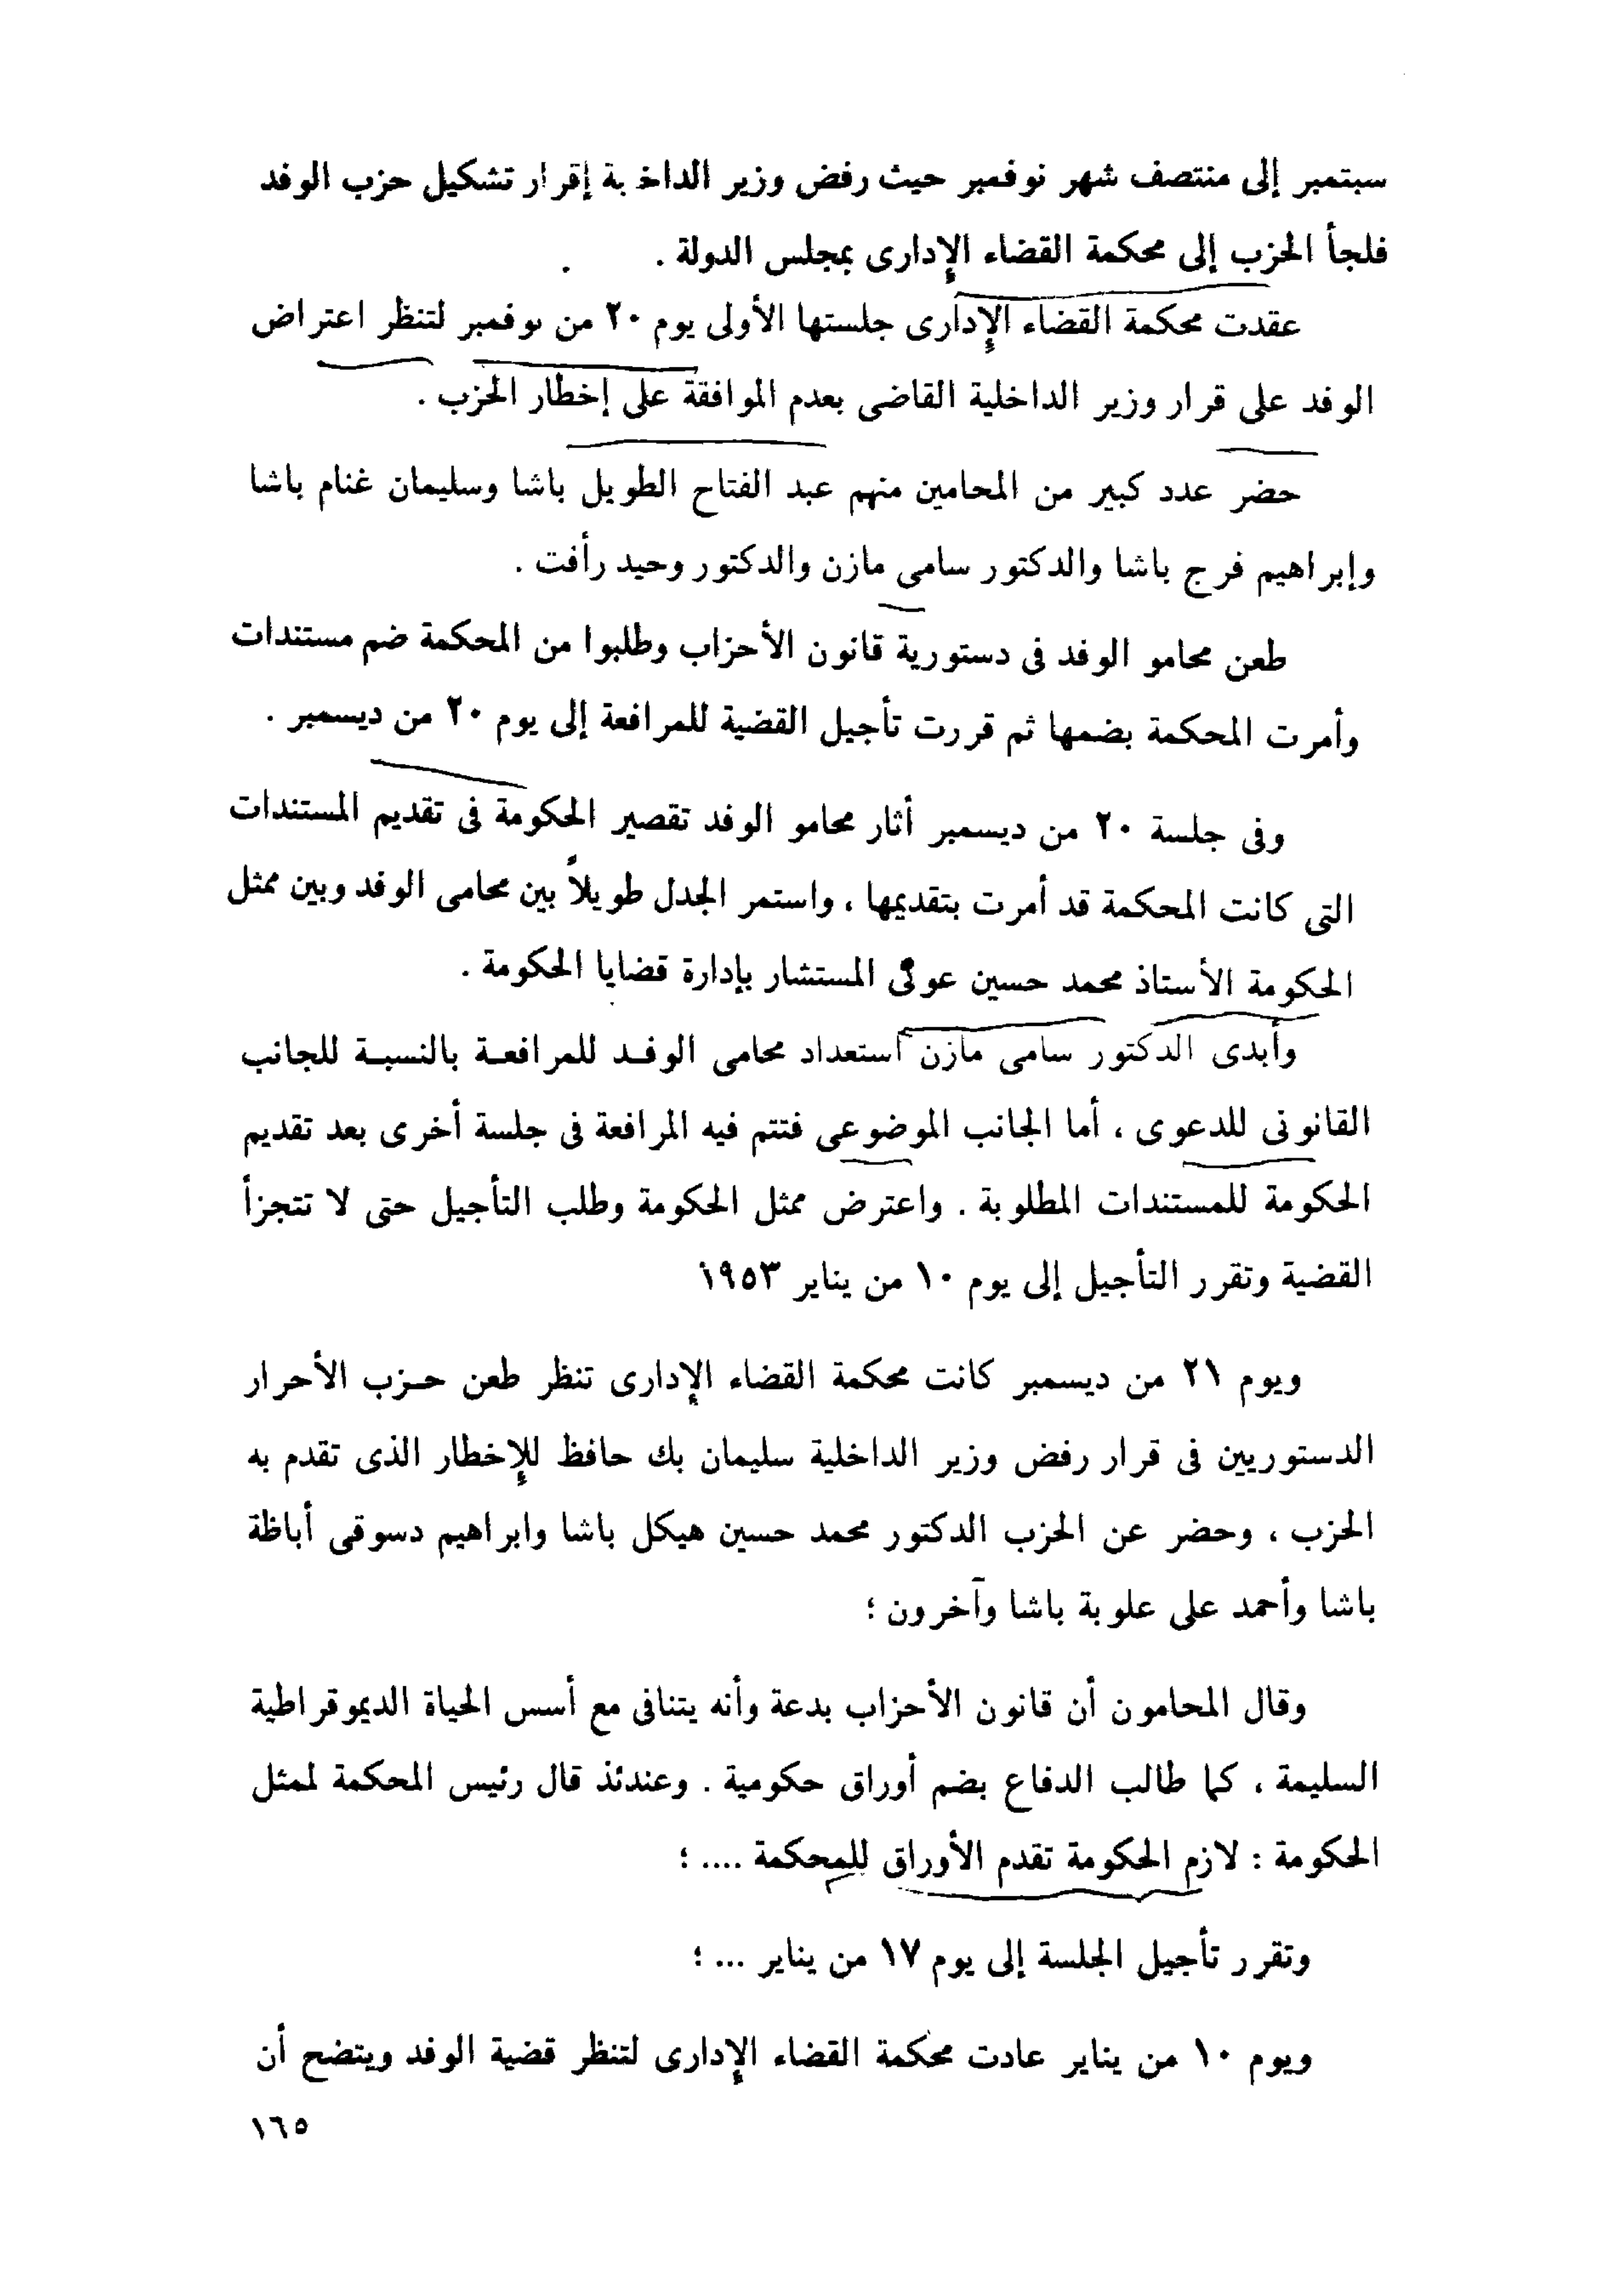 سبتمبر إلى منتصف شهر نوفمبر حيث رفض وزير الداخلية إقرار تشكيل حزب الوفد
فلجأ الحزب إلى محكمة القضاء الإدارى بمجلس الدولة .
عقدت محكمة القضاء الإدارى جلستها الأولى يوم ٢٠ من نوفمبر لتنظر اعتراض
الوفد على قرار وزير الداخلية القاضى بعدم الموافقة على إخطار الحزب .
حضر عدد كبير من المحامين منهم عبد الفتاح الطويل باشا وسليمان غنام باشا
وإبراهيم فرج باشا والدكتور سامى مازن والدكتور وحيد رأفت .
طعن محامو الوفد فى دستورية قانون الأحزاب وطلبوا من المحكمة ضم مستندات
وأمرت المحكمة بضمها ثم قررت تأجيل القضية للمرافعة إلى يوم ٢٠ من ديسمبر .
وفى جلسة ٢٠ من ديسمبر أثار محامو الوفد تقصير الحكومة فى تقديم المستندات
التى كانت المحكمة قد أمرت بتقديمها ، واستمر الجدل طويلاً بين محامى الوفد وبين ممثل
الحكومة الأستاذ محمد حسين المستشار بإدارة قضايا الحكومة .
وأبدى الدكتور سامى مازن استعداد محامى الوفـد للمرافعـة بالنسبـة للجانب
القانونى للدعوى ، أما الجانب الموضوعى فتتم فيه المرافعة فى جلسة أخرى بعد تقديم
الحكومة للمستندات المطلوبة . واعترض ممثل الحكومة وطلب التأجيل حتى لا تتجزأ
القضية وتقرر التأجيل إلى يوم ١٠ من يناير ١٩٥٣
ويوم ٢١ من ديسمبر كانت محكمة القضاء الإدارى تنظر طعن حـزب الأحرار
الدستوريين فى قرار رفض وزير الداخلية سليمان بك حافظ للإخطار الذى تقدم به
الحزب ، وحضر عن الحزب الدكتور محمد حسين هيكل باشا وابراهيم دسوقى أباظة
باشا وأحمد على علوبة باشا وآخرون ؛
وقال المحامون أن قانون الأحزاب بدعة وأنه يتنافى مع أسس الحياة الديموقراطية
السليمة ، كما طالب الدفاع بضم أوراق حكومية . وعندئذ قال رئيس المحكمة لممثل
الحكومة : لازم الحكومة تقدم الأوراق للمحكمة .... ؛
وتقرر تأجيل الجلسة إلى يوم ١٧ من يناير ... ؛
ويوم ١٠ من يناير عادت محكمة القضاء الإدارى لتنظر قضية الوفد ويتضح أن
١٦٥